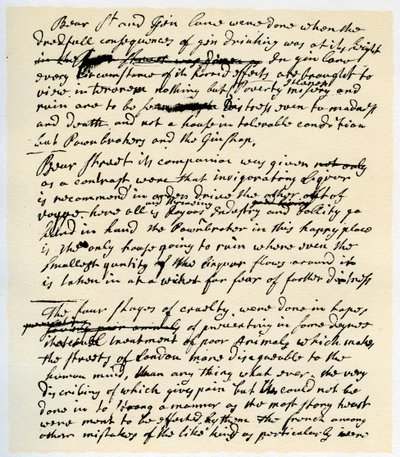 Bear St and Gin Lane were done when the
dredfull consequences of gin drinking was at its hight
In gin lane
every circumstance of its horrid effects are brought to
view in terorem nothing but Poverty misery and
ruin are to be seen Distress even to madness
and death and not a house in tolerable condition
but Pawnbrokers and the Ginshop.
Bear Street its companion was given not only
as a contrast were that invigorating liquor
is recommend in order drive the other out of
vogue. here all is Joyous Industry and Jollity go
hand in hand the Pawnbroker in this happy place
is the only house going to ruin where even the
smallest quntity of the liquor flows around it
is taken in at a wicket for fear of farther distress
The four stages of cruelty. were done in hopes
of preventing in some degree
treatment of poor Animals which makes
the streets of London more disagreable to the
human mind, than any thing what ever. the very
discribing of which gives pain but it could not be
done in so strong a manner as the most stony heart
were ment to be effected by them the french among
other mistakes of the like kind as particularly were